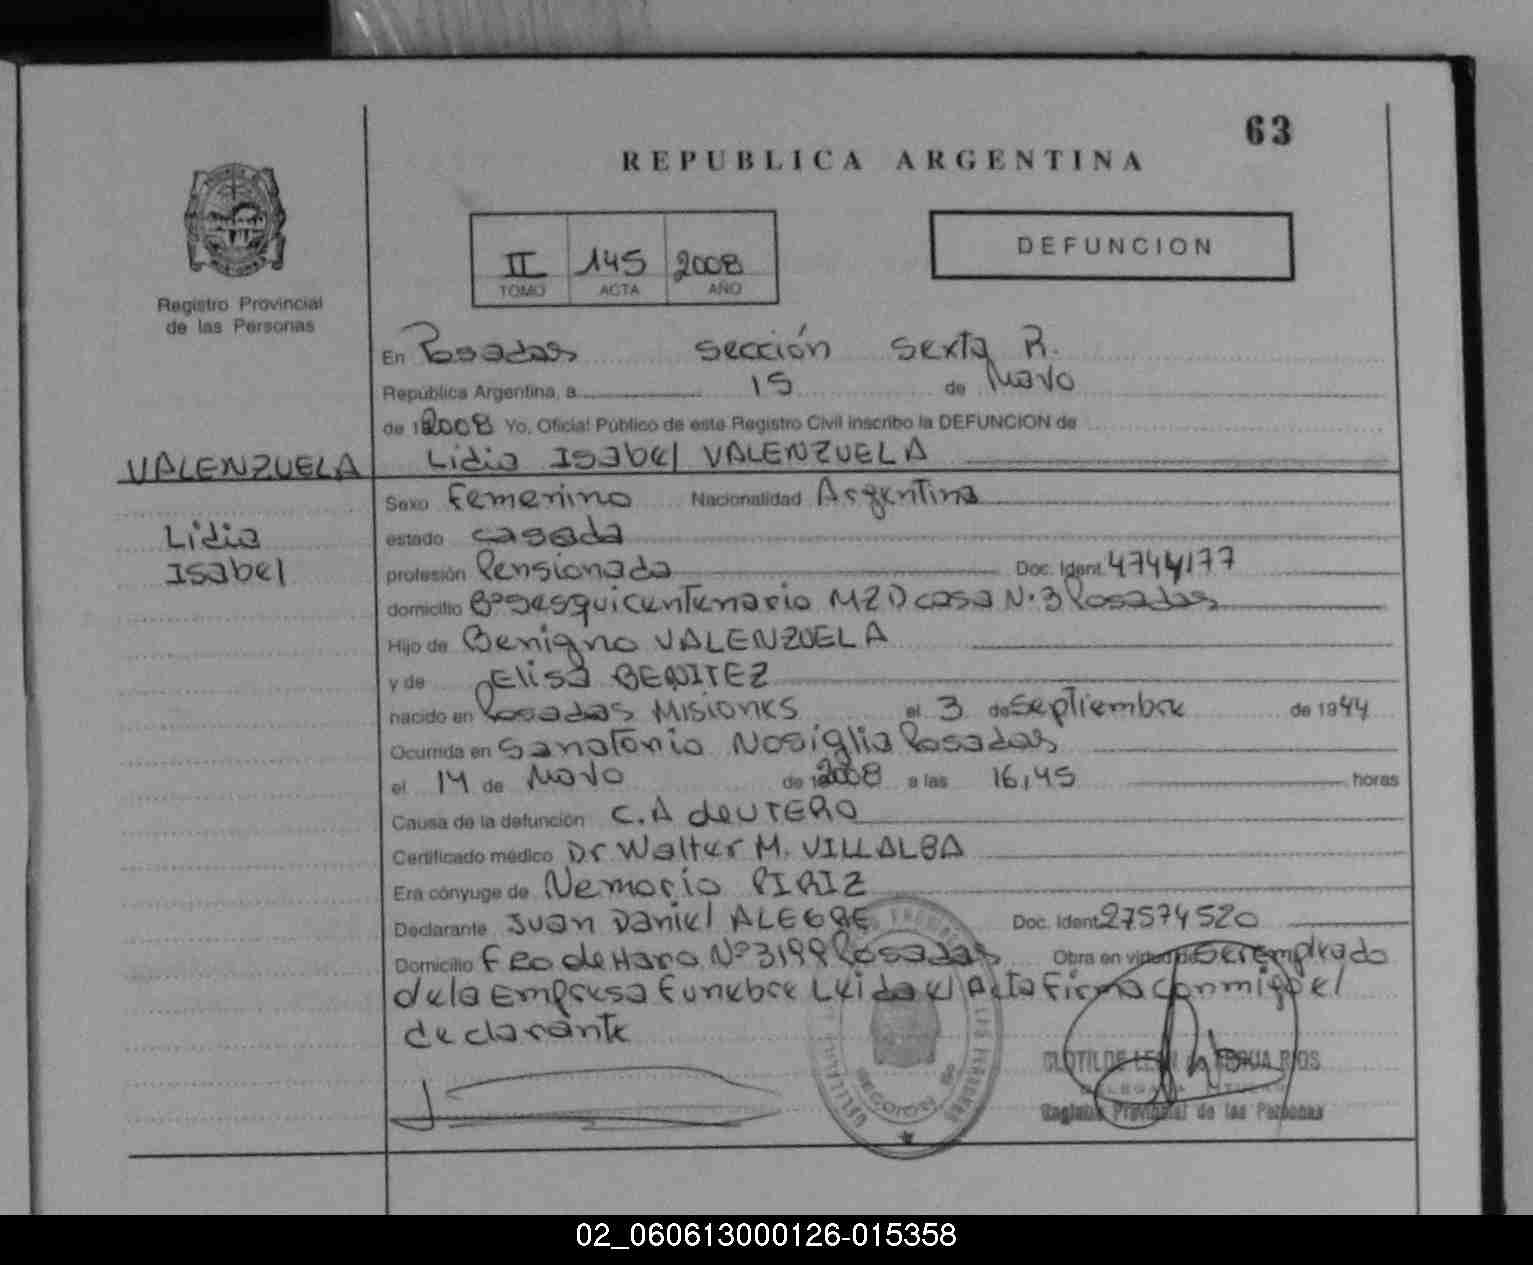 63
REPUBLICA ARGENTINA
II 145 2008
TOMO ACTA AÑO
DEFUNCION
Registro Provincial
de las Personas
En Posadas sección sexta R.
República Argentina, a 15 de Mayo
de 12008 Yo, Oficial Público de este Registro Civil inscribo la DEFUNCION de
VALENZUELA Lidia Isabel VALENZUELA
Sexo Femenino Nacionalidad Argentina
Lidia
Isabel
estado casada
profesión Pensionada Doc. Ident. 4744177
domicilio Bº Sesquicentenario MZ D casa N·3 Posadas
Hijo de Benigno VALENZUELA
y de Elisa BENITEZ
nacido en Posadas Misiones el 3 de Septiembre de 1944
Ocurrida en Sanatorio Nosiglia Posadas
el 14 de Mayo de 2008 a las 16,45 horas
Causa de la defunción C.A de UTERO
Certificado médico Dr Walter M. VILLALBA
Era cónyuge de Nemorio PIRIZ
Declarante Juan Daniel ALEGRE Doc. Ident. 27574520
Domicilio Fco de Haro Nº 3199 Posadas Obra en virtud de Ser empleado
de la Empresa Funebre Leida el Acta Firma conmigo el
declarante
CLOTILDE RIOS
Registro Provincial de las Personas
02_060613000126-015358